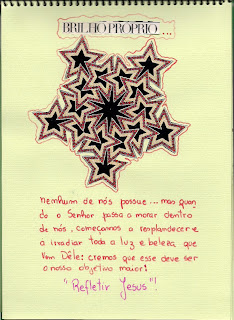 BRILHO PRÓPRIO...
nenhum de nós possue... mas quan
do o Senhor passa a morar dentro
de nós, começamos a resplandecer e
a irradiar toda a luz e beleza que
vem Dêle: cremos que esse deve ser
o nosso objetivo maior!
"Refletir Jesus"!